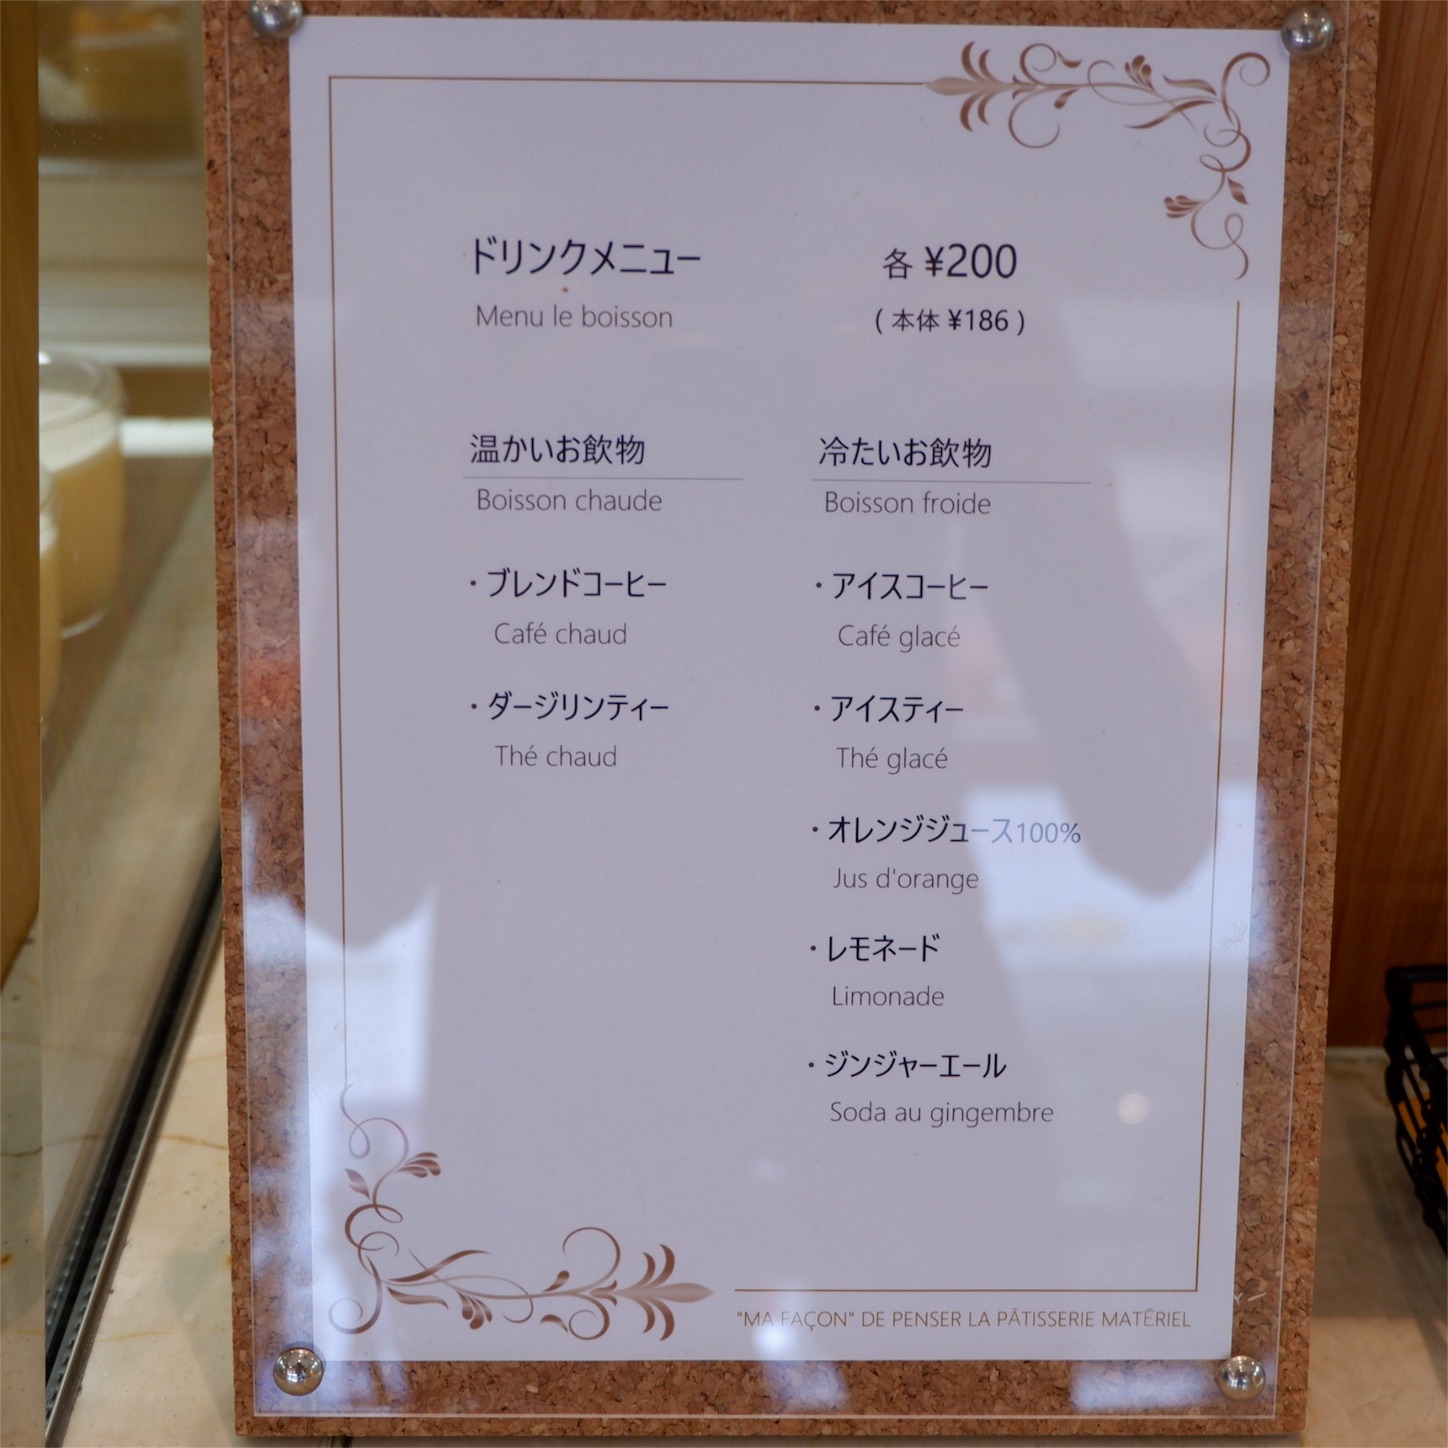 ドリンクメニュー
Menu le boisson
各 ¥200
( 本体 ¥186 )
温かいお飲物
Boisson chaude
・ブレンドコーヒー
Café chaud
・ダージリンティー
Thé chaud
冷たいお飲物
Boisson froide
・アイスコーヒー
Café glacé
・アイスティー
Thé glacé
・オレンジジュース100%
Jus d'orange
・レモネード
Limonade
・ジンジャーエール
Soda au gingembre
"MA FAÇON" DE PENSER LA PÂTISSERIE MATÊRIEL